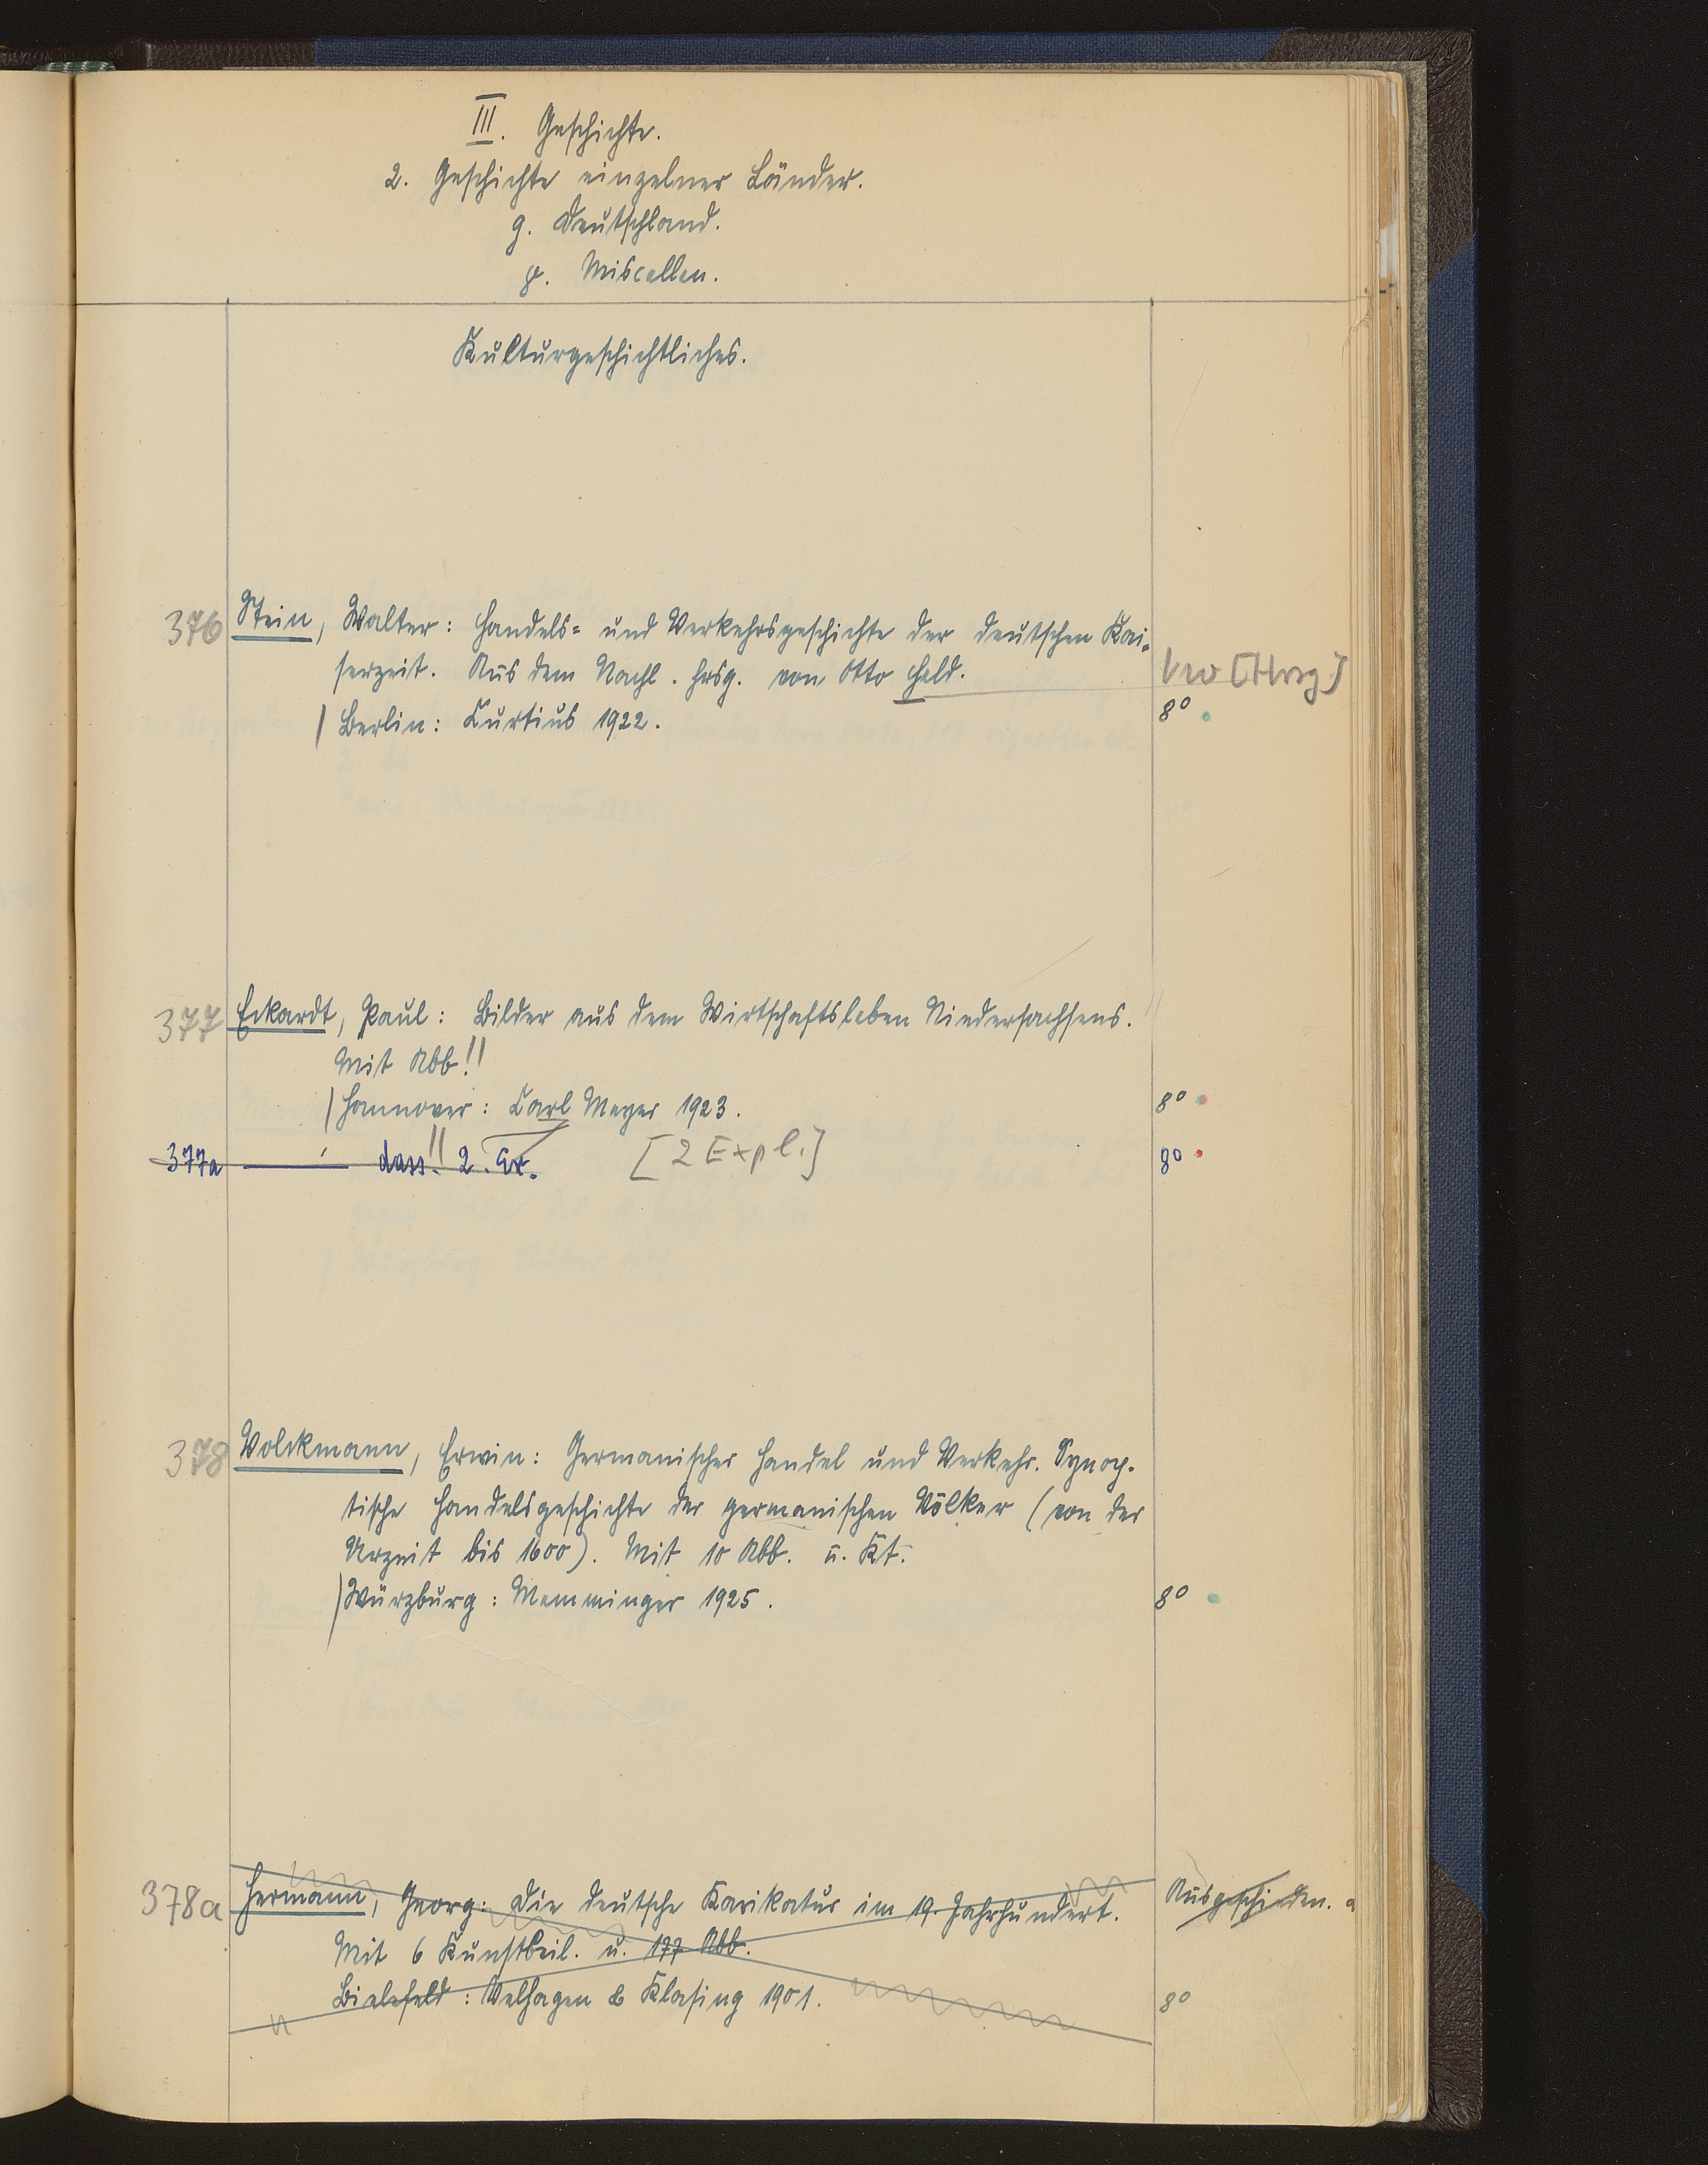 III. Geschichte.
2. Geschichte einzelner Länder.
g. Deutschland.
γ. Miscellen.
Kulturgeschichtliches.
376 Stein, Walter: Handels= und Verkehrsgeschichte der deutschen Kai-
serzeit. Aus dem Nachl. hrsg. von Otto Held.
[Hrsg]
/ Berlin: Curtius 1922. 8°
377 Eckardt, Paul: Bilder aus dem Wirtschaftsleben Niedersachsens.
Mit Abb!!
/ Hannover: Carl Meyer 1923. 8°
377a —— dass!! 2. Ex. [2 Expl.] 8°
378 Volckmann, Erwin: Germanischer Handel und Verkehr. Synop-
tische Handelsgeschichte der germanischen Völker (von der
Urzeit bis 1600). Mit 10 Abb. u. Kt.
/ Würzburg: Memminger 1925. 8°
378a Hermann, Georg: Die deutsche Karikatur im 19. Jahrhundert. Ausgeschieden.
Mit 6 Kunstbeil. u. 177 Abb.
Bielefeld: Velhagen & Klasing 1901. 8°